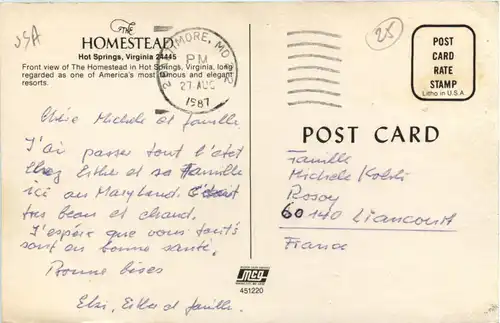 USA
The
HOMESTEAD
Hot Springs, Virginia 24445
Front view of The Homestead in Hot Springs, Virginia, long
regarded as one of America's most famous and elegant
resorts.
MORE, MD 212
PM
27 AUG
1987
25
POST
CARD
RATE
STAMP
Litho in U.S.A
Chère Michele et famille
J'ai passer tout l'état
chez Esthe et sa Famille
ici au Maryland. C'était
tres beau et chaud.
J'espère que vous touts
sont en bonne santé.
Bonne bises
Elsi, Esthe et famille.
POST CARD
Famille
Michele
Rosoy
60140 Liancourt
France
mcg
451220